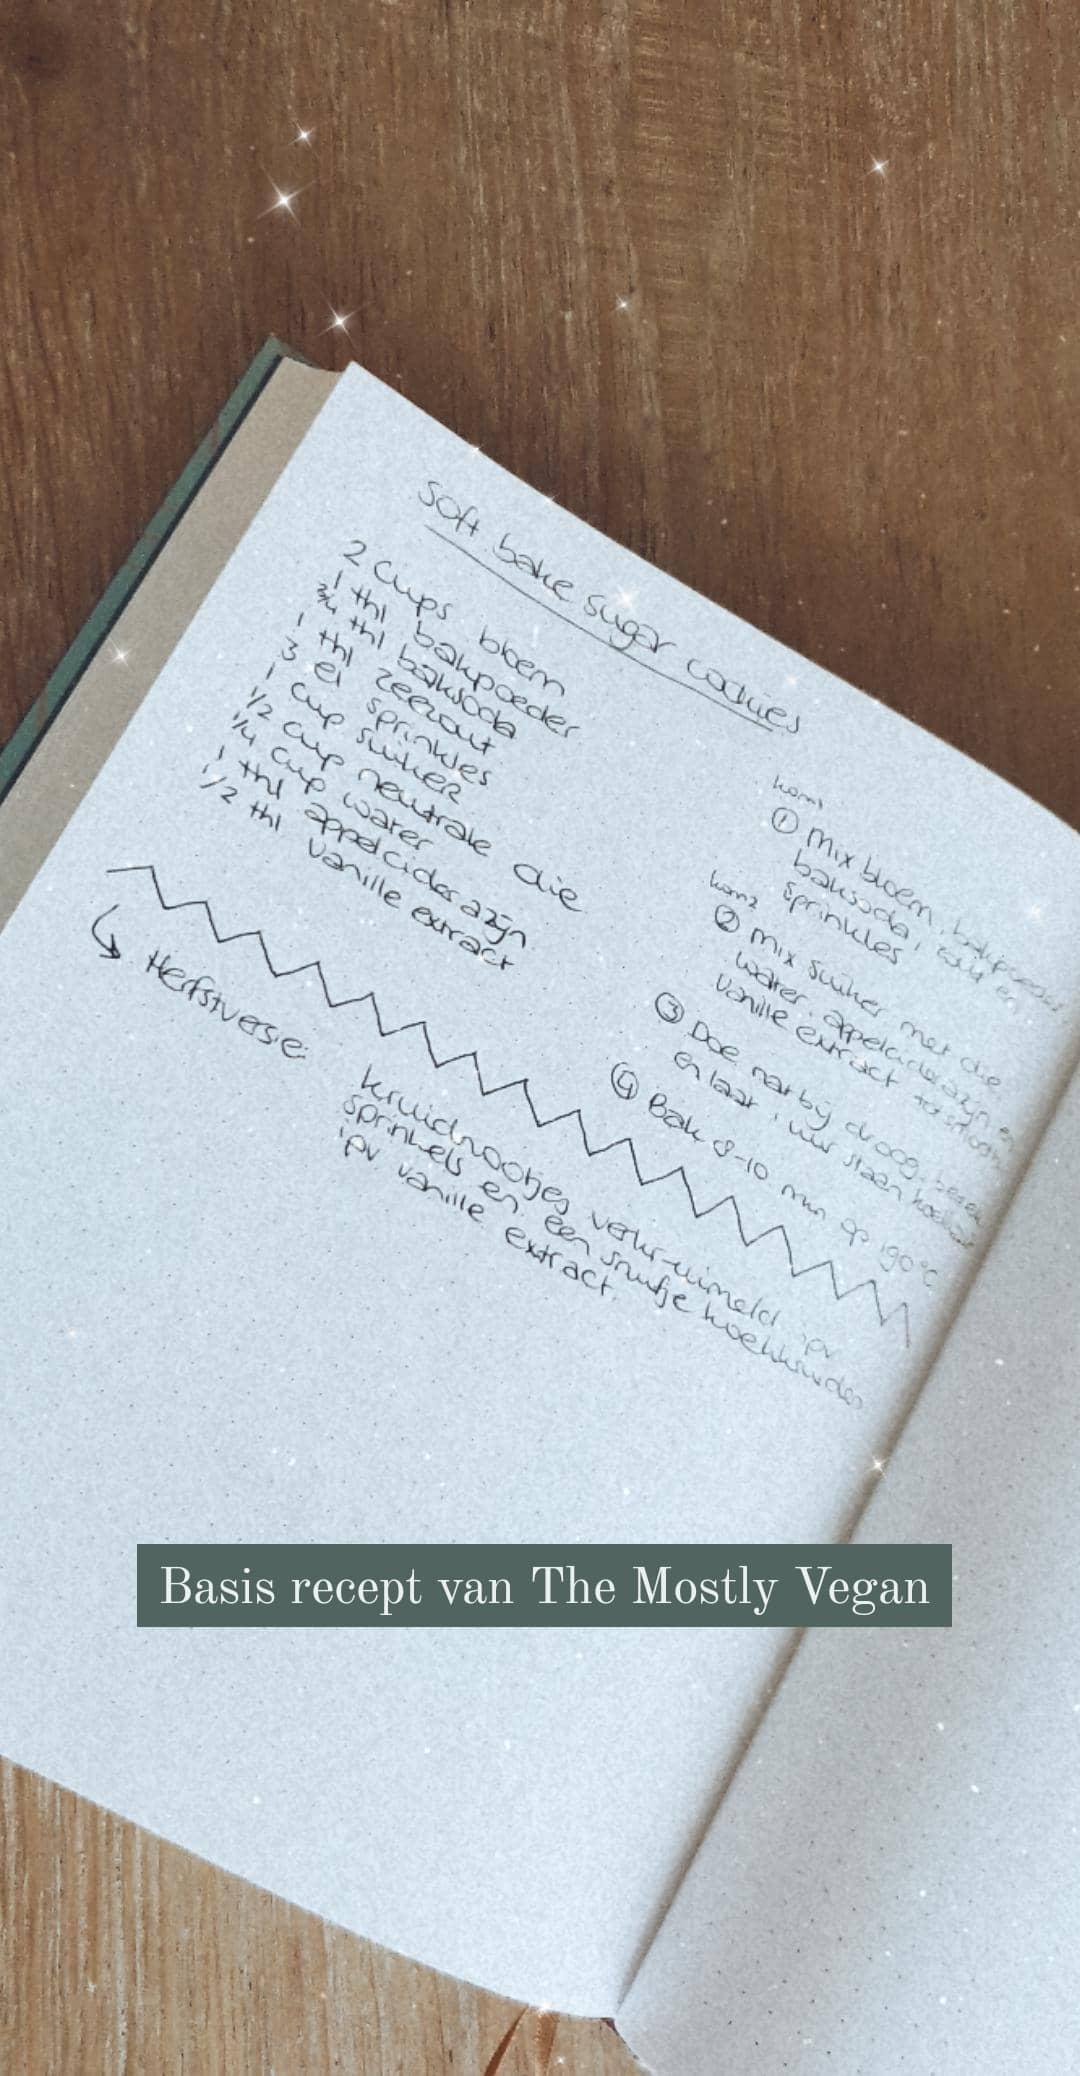 Soft bake sugar cookies
2 cups bloem
1 thl bakpoeder
3/4 thl baksoda
1 thl zeezout
3 el sprinkles
1 cup suiker
1/2 cup neutrale olie
1/4 cup water
1 thl appelciderazijn
1/2 thl vanille extract
kom 1
① Mix bloem, bakpoeder
baksoda, zout en
sprinkles
kom 2
② Mix suiker met olie
water, appelciderazijn en
vanille extract tot smooth
③ Doe nat bij droog,
en laat 1 uur staan koelkast
④ Bak 8-10 min op 190°C
Herfstversie:
kruidnootjes verkruimeld ipv
sprinkels en een snufje koekkruiden
ipv vanille extract.
Basis recept van The Mostly Vegan